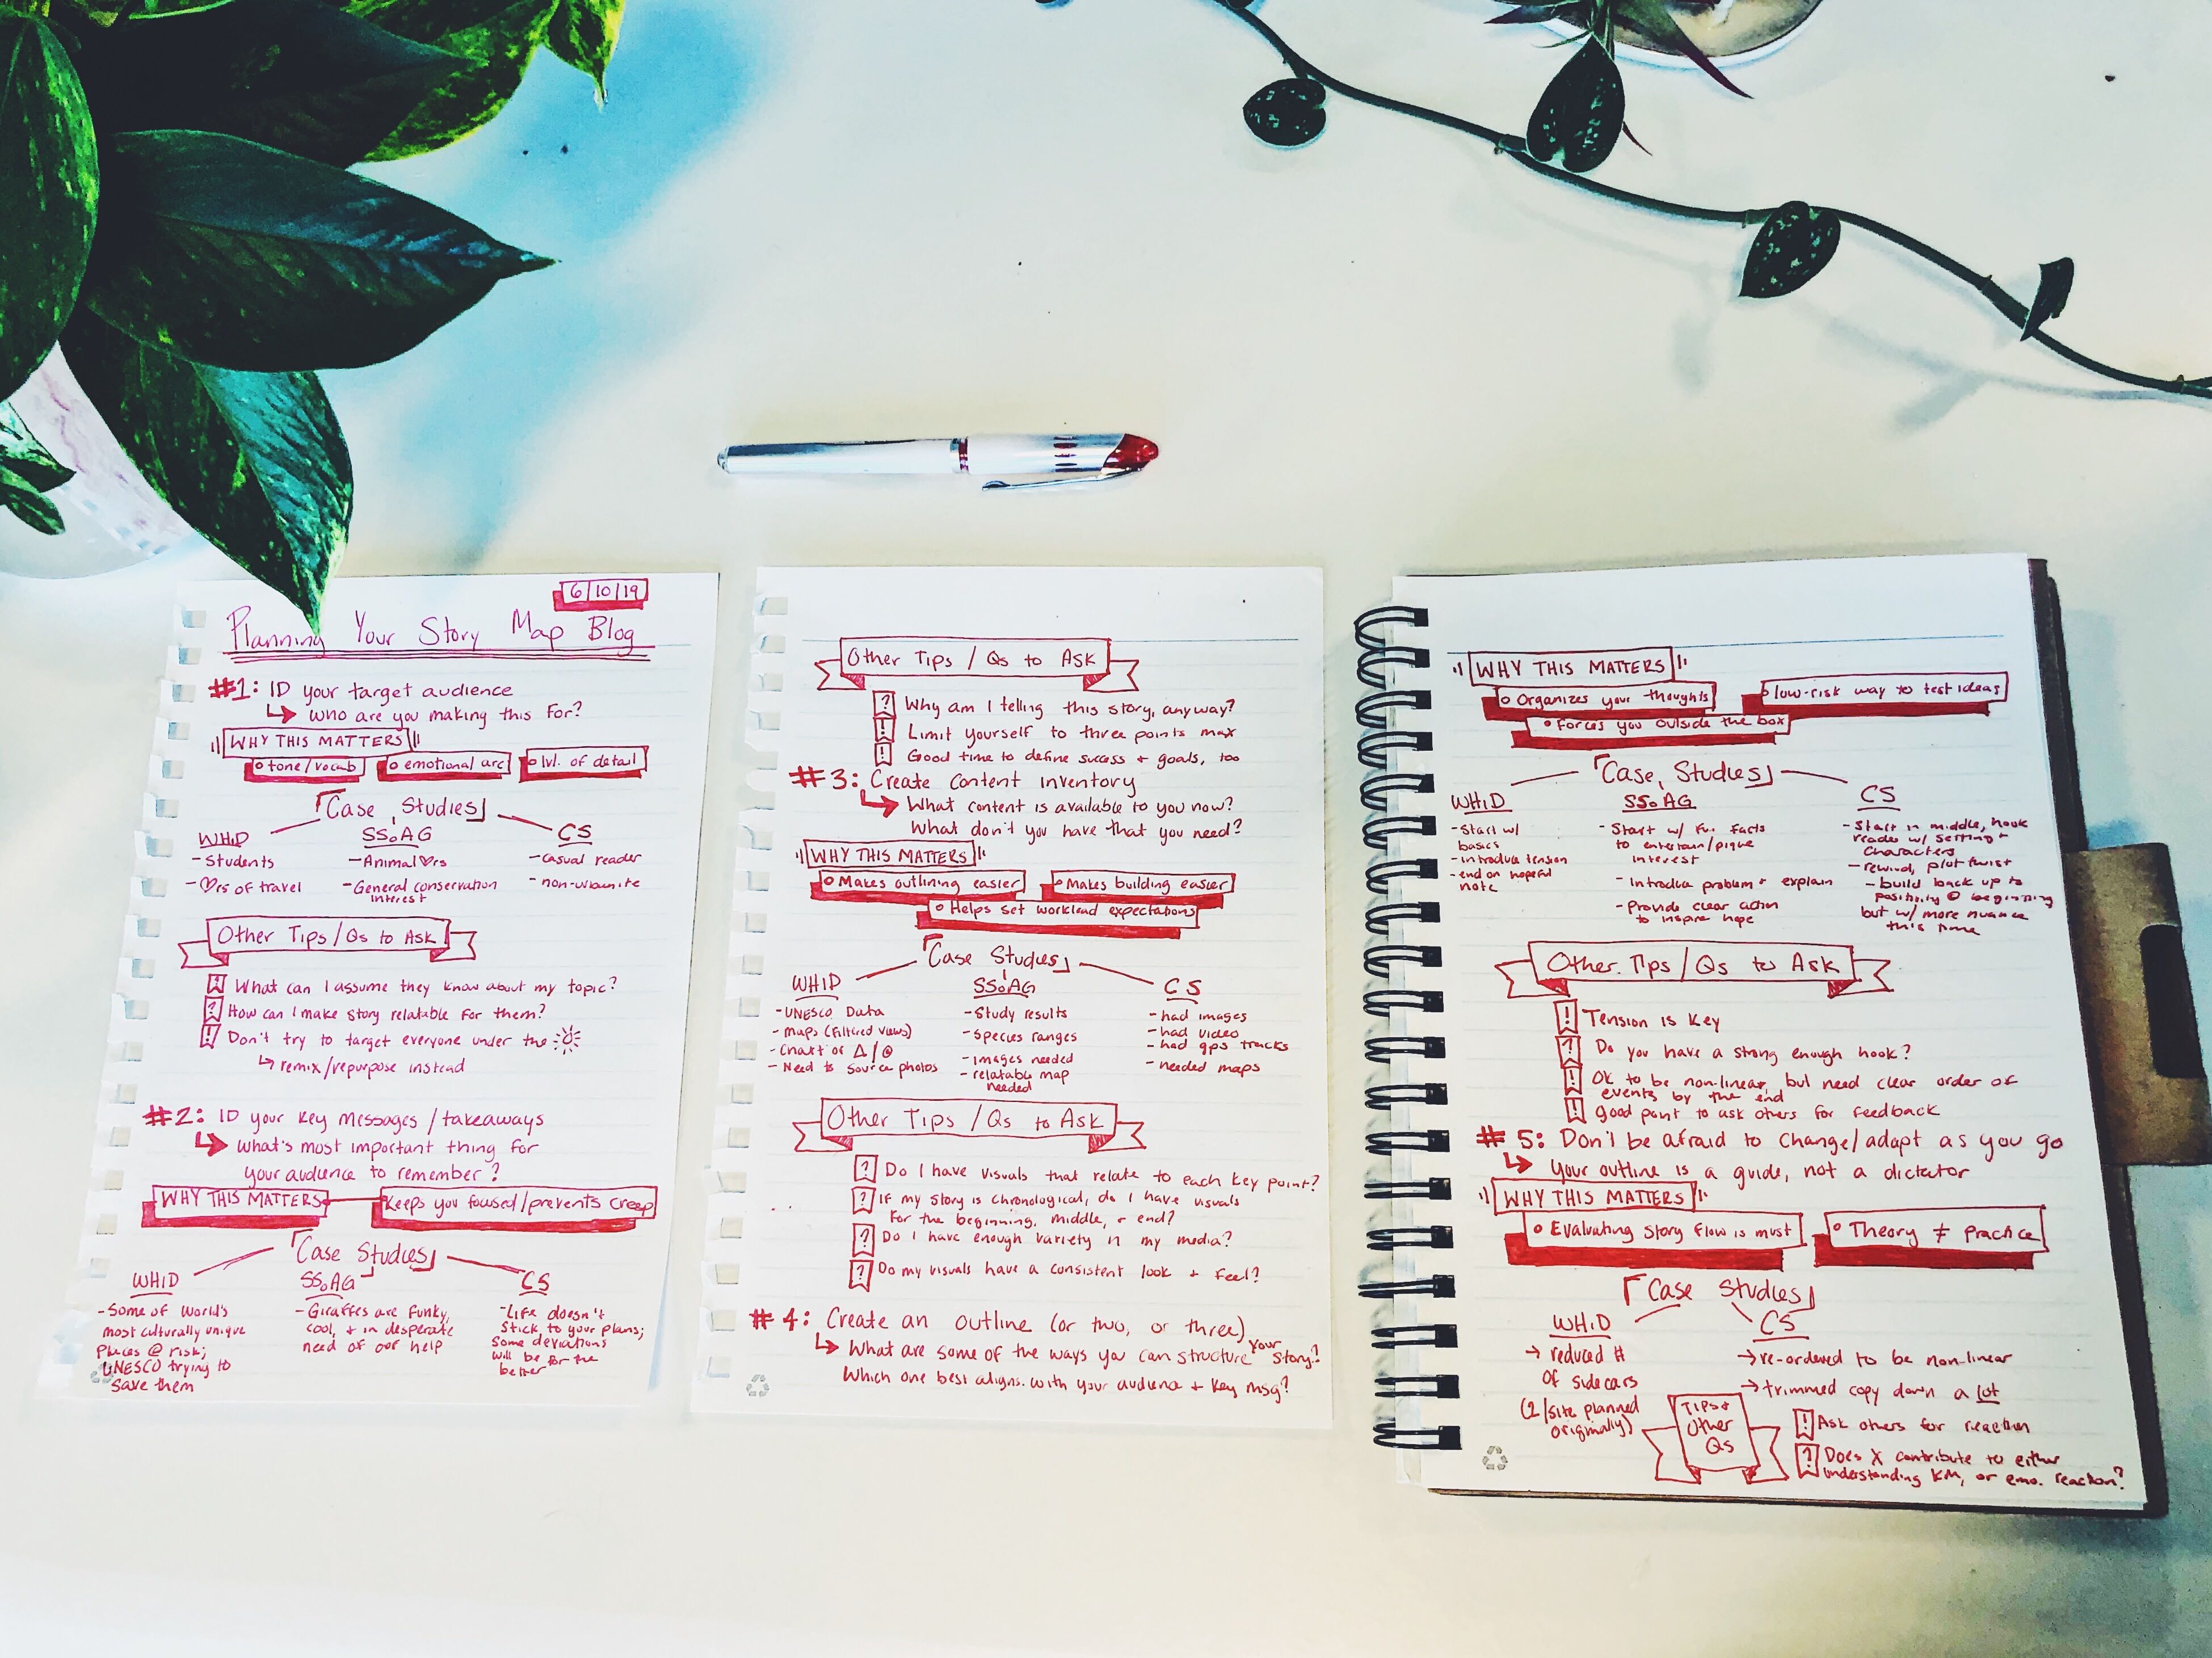 6/10/19
Planning Your Story Map Blog
#1: ID your target audience
↳ who are you making this for?
WHY THIS MATTERS
• tone/vocab • emotional arc • lvl. of detail
Case Studies
WHiD SSoAG CS
- Students
- ♡rs of travel
- Animal ♡rs
- General conservation
interest
- casual reader
- non-urbanite
Other Tips/Qs to Ask
? What can I assume they know about my topic?
? How can I make story relatable for them?
! Don't try to target everyone under the ☼
↳ remix/repurpose instead
#2: ID your key messages/takeaways
↳ what's most important thing for
your audience to remember?
WHY THIS MATTERS Keeps you focused/prevents creep
Case Studies
WHiD SSoAG CS
- Some of World's
most culturally unique
places @ risk;
UNESCO trying to
save them
- Giraffes are funky,
cool, + in desperate
need of our help
- Life doesn't
stick to your plans;
some deviations
will be for the
better
Other Tips / Qs to Ask
? Why am I telling this story, anyway?
! Limit yourself to three points max
! Good time to define success + goals, too
#3: Create Content inventory
↳ What content is available to you now?
What don't you have that you need?
WHY THIS MATTERS
• Makes outlining easier • Makes building easier
• Helps set workload expectations
Case Studies
WHiD SSoAG CS
- UNESCO Data
- maps (filtered views)
- Chart of Δ/@
- Need to source photos
- Study results
- Species ranges
- images needed
- relatable map
needed
- had images
- had video
- had gps tracks
- needed maps
Other Tips / Qs to Ask
? Do I have visuals that relate to each key point?
? If my story is chronological, do I have visuals
for the beginning, middle, + end?
? Do I have enough variety in my media?
? Do my visuals have a consistent look + feel?
#4: Create an outline (or two, or three)
↳ What are some of the ways you can structure your story?
Which one best aligns with your audience + key msg?
WHY THIS MATTERS
• Organizes your thoughts • low-risk way to test ideas
• Forces you outside the box
Case Studies
WHiD SSoAG CS
- Start w/
basics
- introduce tension
- end on hopeful
note
- Start w/ fun facts
to entertain/pique
interest
- Introduce problem + explain
- Provide clear action
to inspire hope
- Start in middle, hook
reader w/ setting +
characters
- rewind, plot twist
- build back up to
positivity @ beginning
but w/ more nuance
this time
Other Tips/Qs to Ask
! Tension is key
? Do you have a strong enough hook?
! Ok to be non-linear, but need clear order of
events by the end
! Good point to ask others for feedback
#5: Don't be afraid to change/adapt as you go
↳ Your outline is a guide, not a dictator
WHY THIS MATTERS
• Evaluating story flow is must • Theory ≠ practice
Case Studies
WHiD CS
→ reduced #
of sidecars
(2/site planned
originally)
→ re-ordered to be non-linear
→ trimmed copy down a lot
Tips +
Other
Qs
! Ask others for reaction
? Does X contribute to either
understanding KM, or emo. reaction?